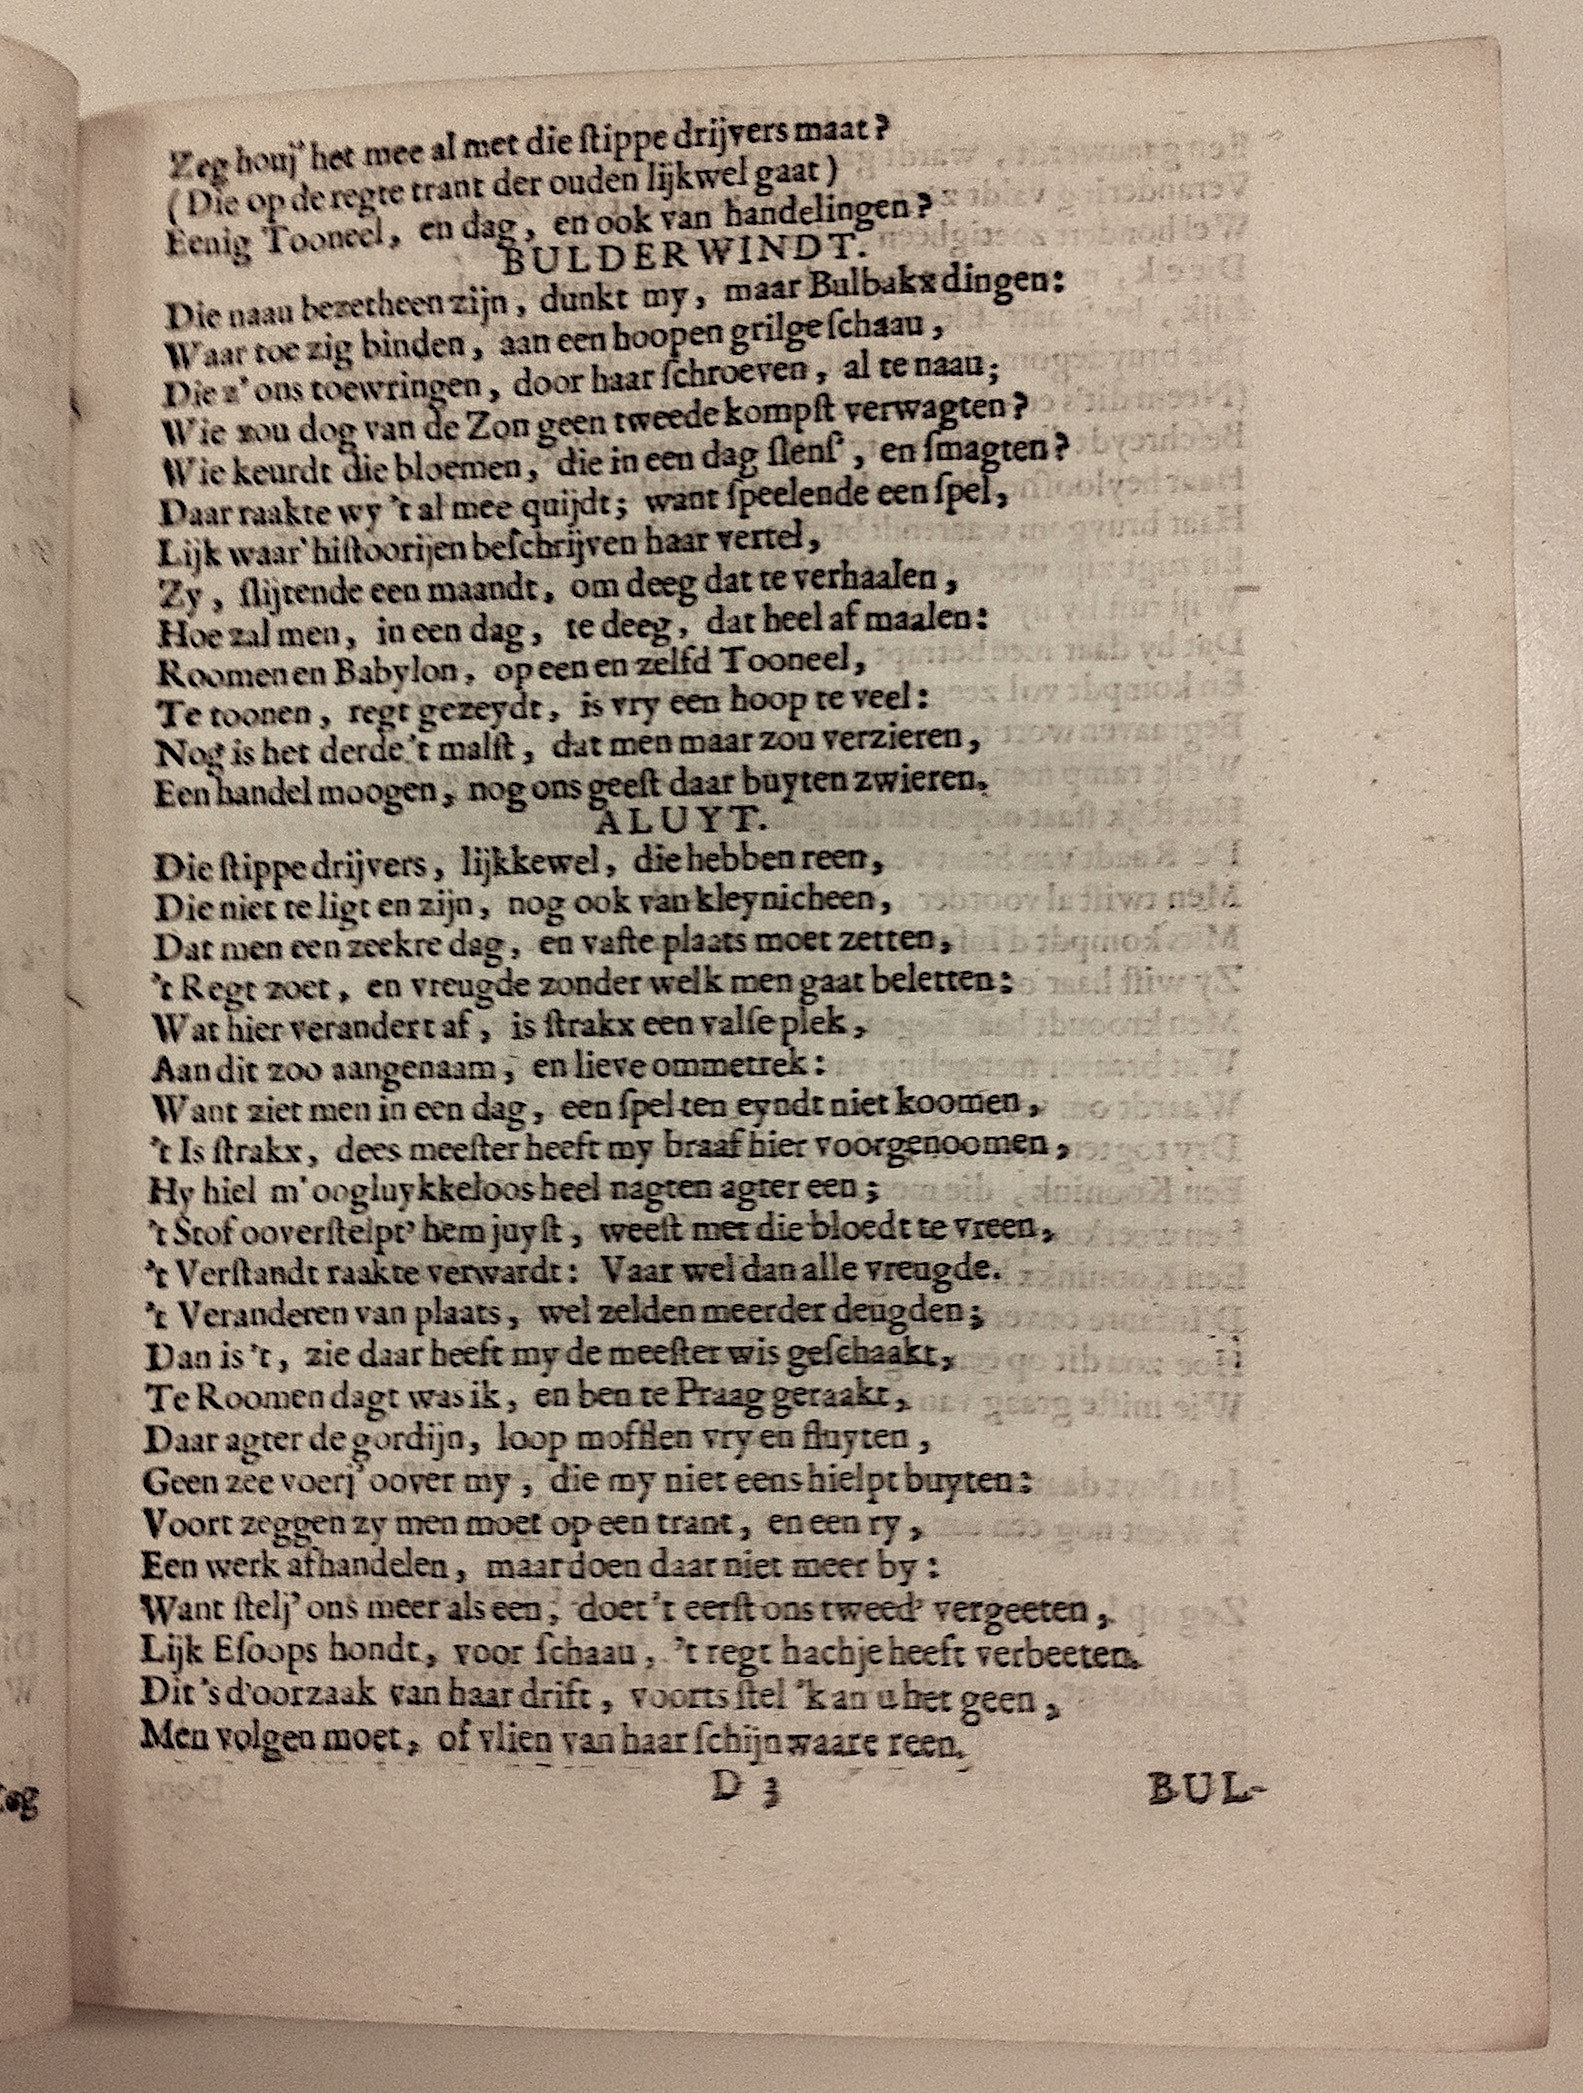 Zeg houj' het mee al met die ſtippe drijvers maat?
(Die op de regte trant der ouden lijkwel gaat)
Eenig Tooneel, en dag, en ook van handelingen?
BULDERWINDT.
Die naau bezetheen zijn, dunkt my, maar Bulbakx dingen:
Waar toe zig binden, aan een hoopen grilgeſchaau,
Die z' ons toewringen, door haar ſchroeven, al te naau;
Wie zou dog van de Zon geen tweede kompſt verwagten?
Wie keurdt die bloemen, die in een dag ſlenſ', en ſmagten?
Daar raakte wy 't al mee quijdt; want ſpeelende een ſpel,
Lijk waar' hiſtoorijen beſchrijven haar vertel,
Zy, ſlijtende een maandt, om deeg dat te verhaalen,
Hoe zal men, in een dag, te deeg, dat heel af maalen:
Roomen en Babylon, op een en zelfd Tooneel,
Te toonen, regt gezeydt, is vry een hoop te veel:
Nog is het derde 't malſt, dat men maar zou verzieren,
Een handel moogen, nog ons geeſt daar buyten zwieren.
ALUYT.
Die ſtippe drijvers, lijkkewel, die hebben reen,
Die niet te ligt en zijn, nog ook van kleynicheen,
Dat men een zeekre dag, en vaſte plaats moet zetten,
't Regt zoet, en vreugde zonder welk men gaat beletten:
Wat hier verandert af, is ſtrakx een valſe plek,
Aan dit zoo aangenaam, en lieve ommetrek:
Want ziet men in een dag, een ſpel ten eyndt niet koomen,
't Is ſtrakx, dees meeſter heeft my braaf hier voorgenoomen,
Hy hiel m' oogluykkeloos heel nagten agter een;
't Stof ooverſtelpt' hem juyſt, weeſt met die bloedt te vreen,
't Verſtandt raakte verwardt: Vaar wel dan alle vreugde.
't Veranderen van plaats, wel zelden meerder deugden;
Dan is 't, zie daar heeft my de meeſter wis geſchaakt,
Te Roomen dagt was ik, en ben te Praag geraakt,
Daar agter de gordijn, loop mofflen vry en fluyten,
Geen zee voerj' oover my, die my niet eens hielpt buyten:
Voort zeggen zy men moet op een trant, en een ry,
Een werk afhandelen, maar doen daar niet meer by:
Want ſtelj' ons meer als een, doet 't eerſt ons tweed' vergeeten,
Lijk Eſoops hondt, voor ſchaau, 't regt hachje heeft verbeeten.
Dit 's d'oorzaak van haar drift, voorts ſtel 'k an u het geen,
Men volgen moet, of vlien van haar ſchijnwaare reen.
D 3 BUL-